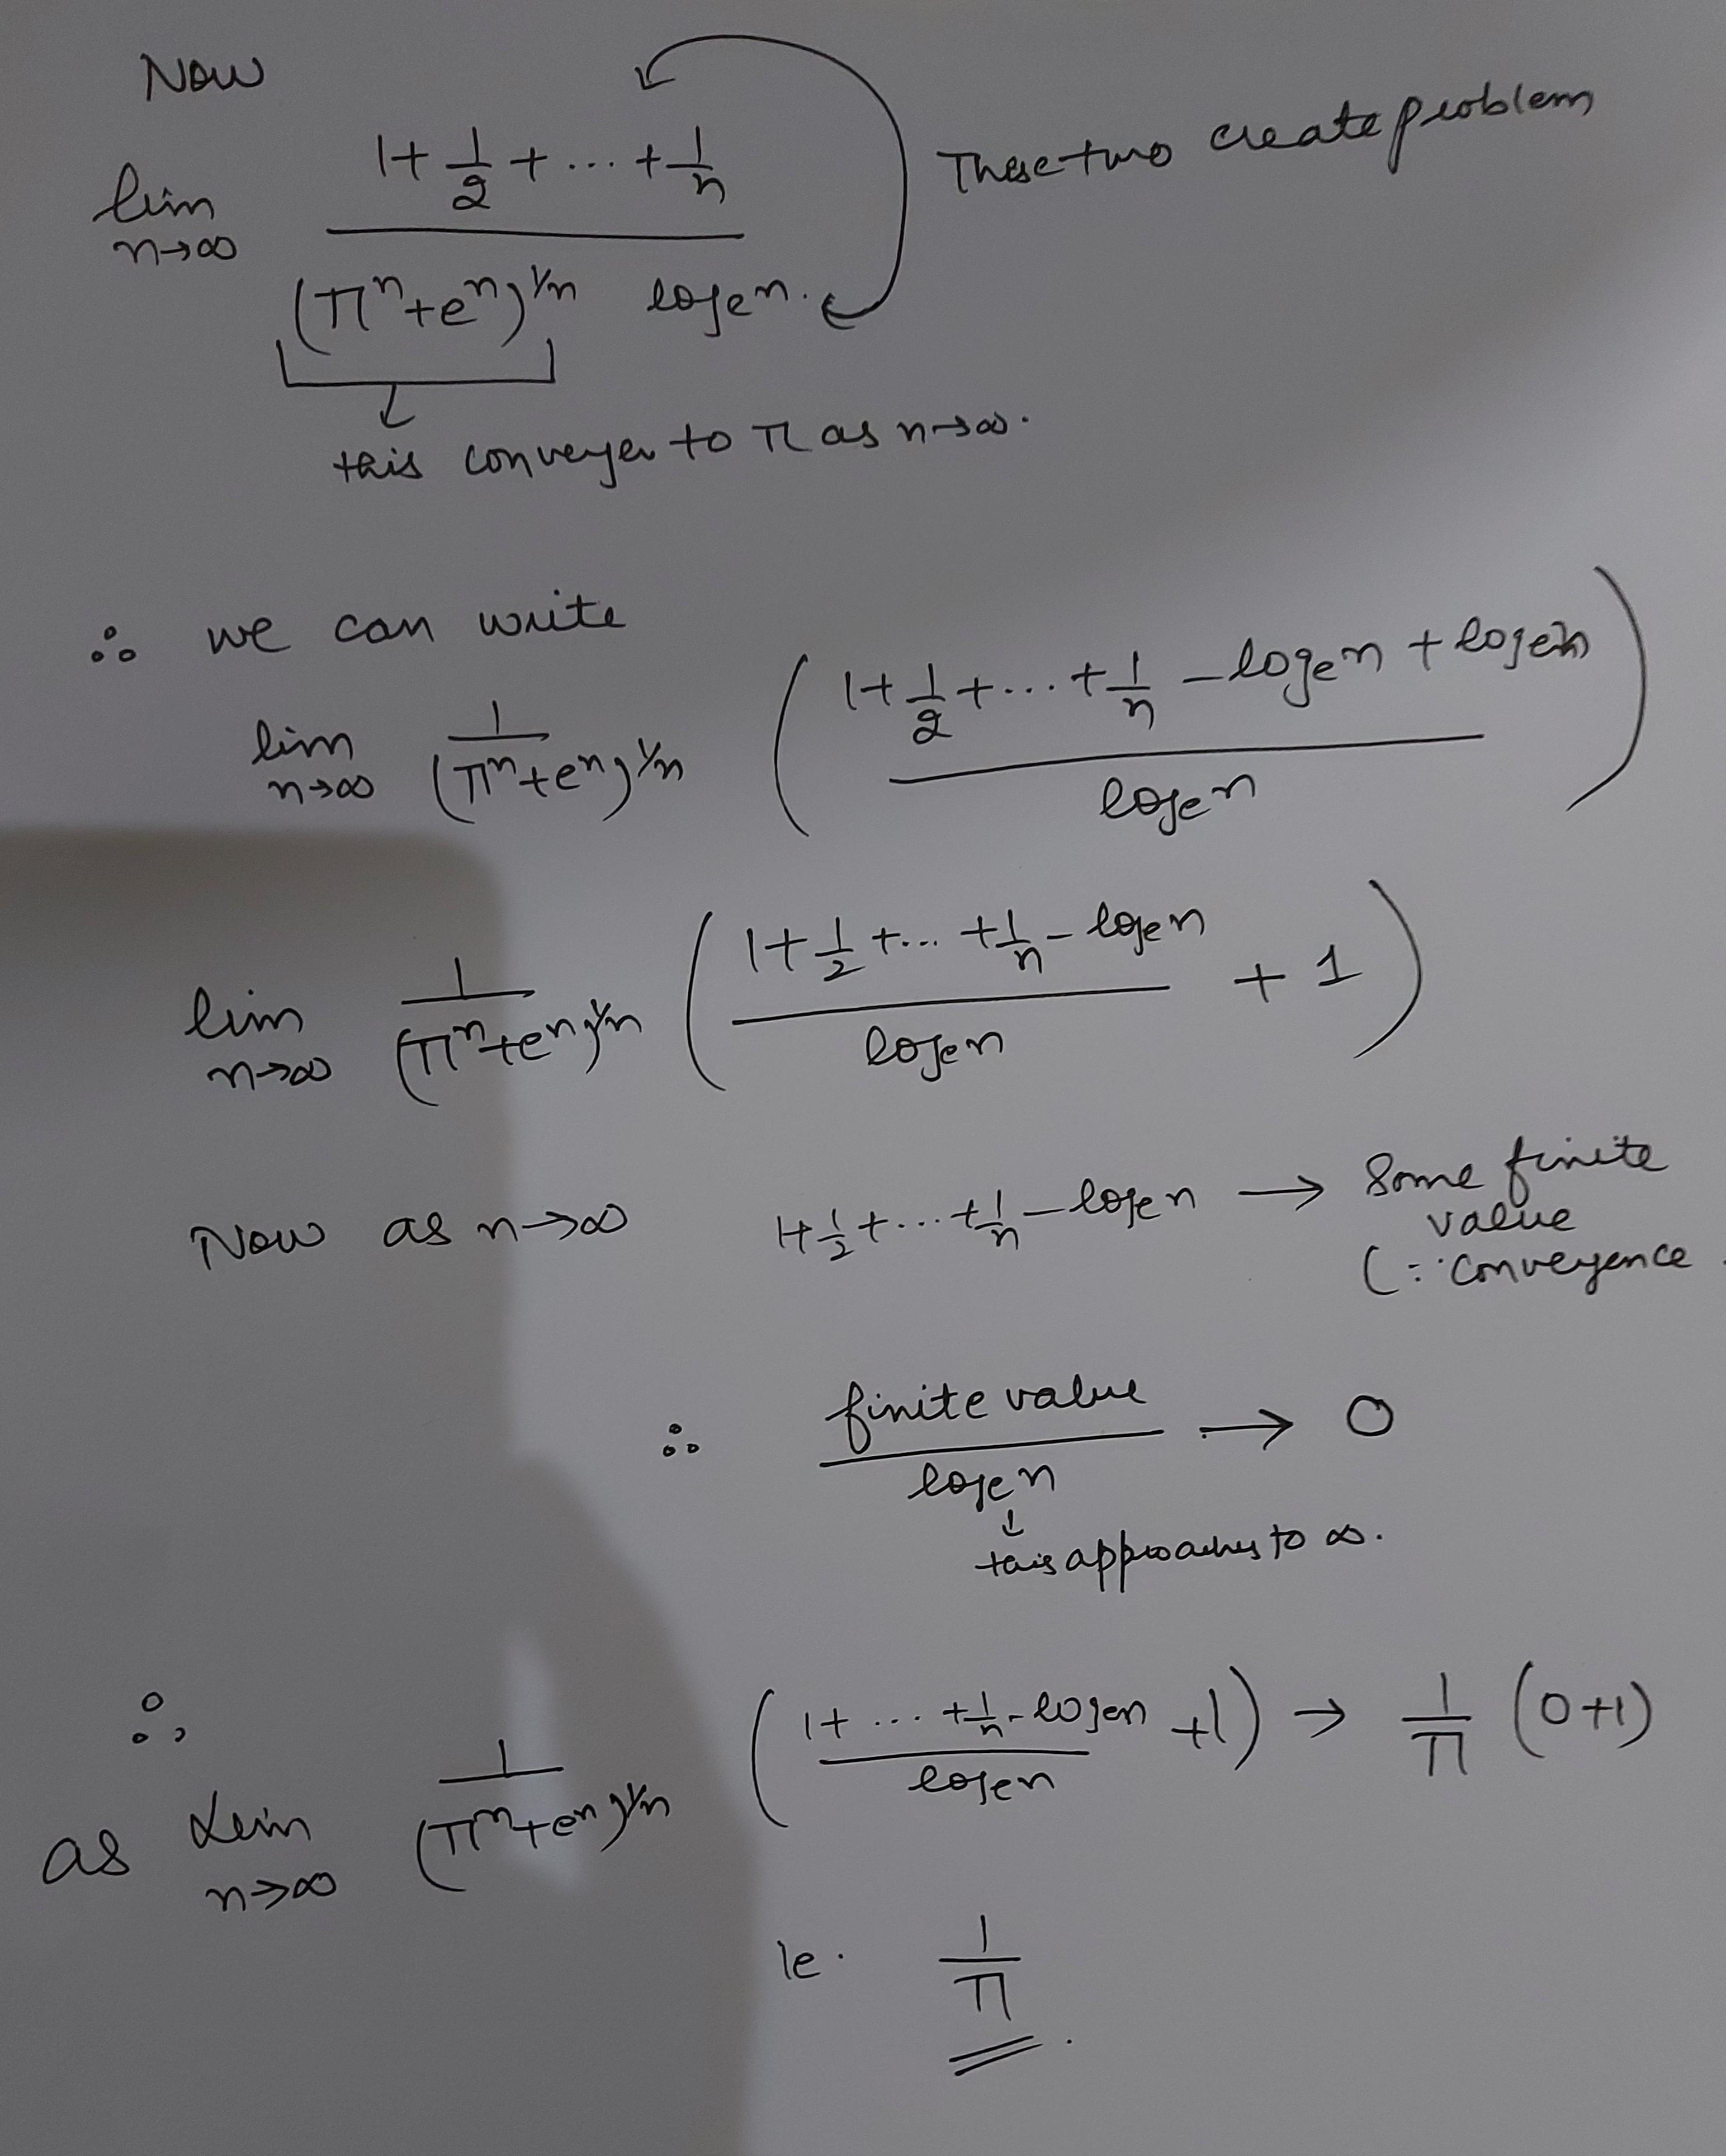 Now
lim n→∞ (1 + 1/2 + ... + 1/n) / ((π^n + e^n)^(1/n) log_e n)
These two create problem
this converges to π as n→∞.
∴ we can write
lim n→∞ 1/(π^n + e^n)^(1/n) ((1 + 1/2 + ... + 1/n - log_e n + log_e n) / log_e n)
lim n→∞ 1/(π^n + e^n)^(1/n) ((1 + 1/2 + ... + 1/n - log_e n) / log_e n + 1)
Now as n→∞ 1 + 1/2 + ... + 1/n - log_e n → Some finite
value
(∵ convergence
∴ finite value / log_e n → 0
↓
this approaches to ∞.
∴,
as Lim n→∞ 1/(π^n + e^n)^(1/n) ((1 + ... + 1/n - log_e n) / log_e n + 1) → 1/π (0+1)
ie. 1/π.